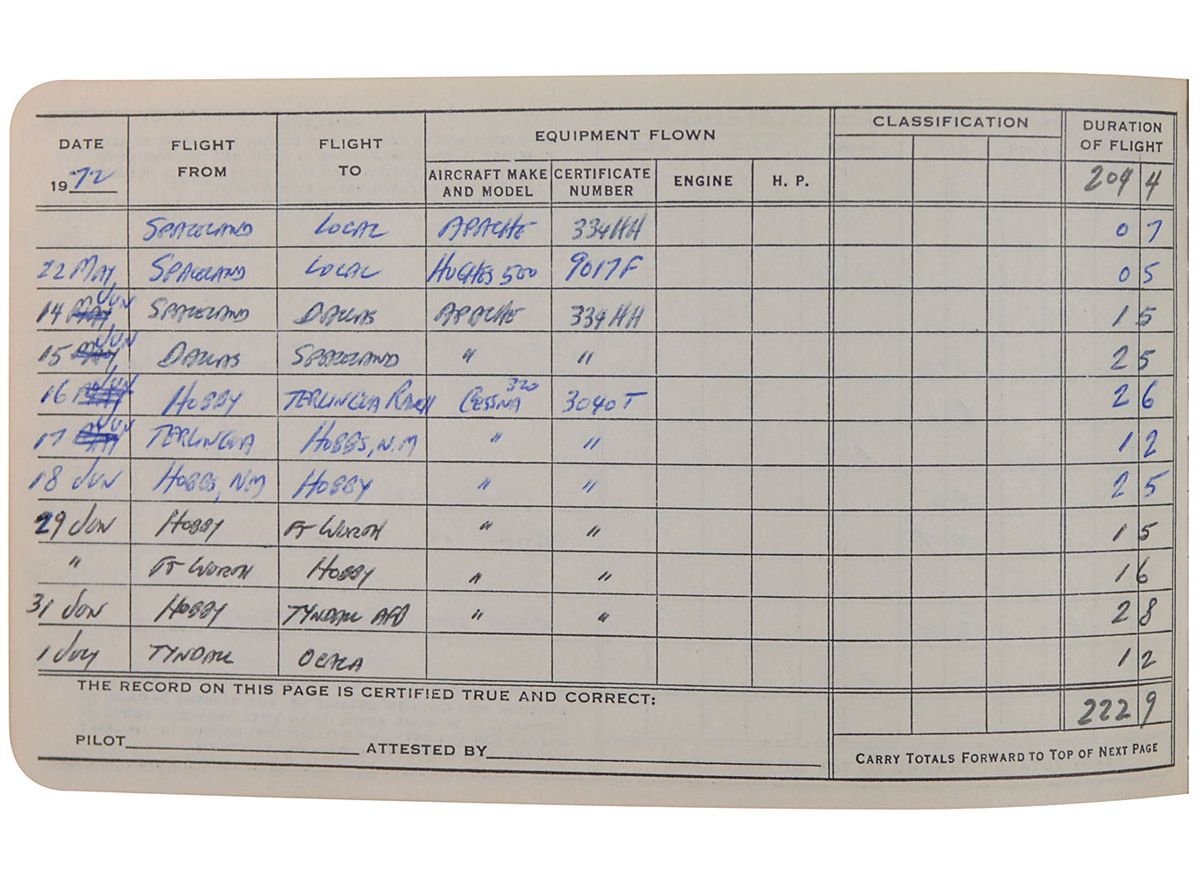 DATE FLIGHT FROM FLIGHT TO EQUIPMENT FLOWN CLASSIFICATION DURATION OF FLIGHT
1972 AIRCRAFT MAKE AND MODEL CERTIFICATE NUMBER ENGINE H. P. 209 4
SPACELAND LOCAL APACHE 334HH 0 7
22 MAY SPACELAND LOCAL HUGHES 500 9017F 0 5
14 JUN SPACELAND DALLAS APACHE 334HH 1 5
15 JUN DALLAS SPACELAND " " 2 5
16 JUN HOBBY TERLINGUA RANCH CESSNA 320 3040T 2 6
17 JUN TERLINGUA HOBBS, N.M " " 1 2
18 JUN HOBBS, N.M HOBBY " " 2 5
29 JUN HOBBY FT WORTH " " 1 5
" FT WORTH HOBBY " " 1 6
31 JUN HOBBY TYNDALL AFB " " 2 8
1 JULY TYNDALL OCALA 1 2
THE RECORD ON THIS PAGE IS CERTIFIED TRUE AND CORRECT: 222 9
PILOT ATTESTED BY CARRY TOTALS FORWARD TO TOP OF NEXT PAGE